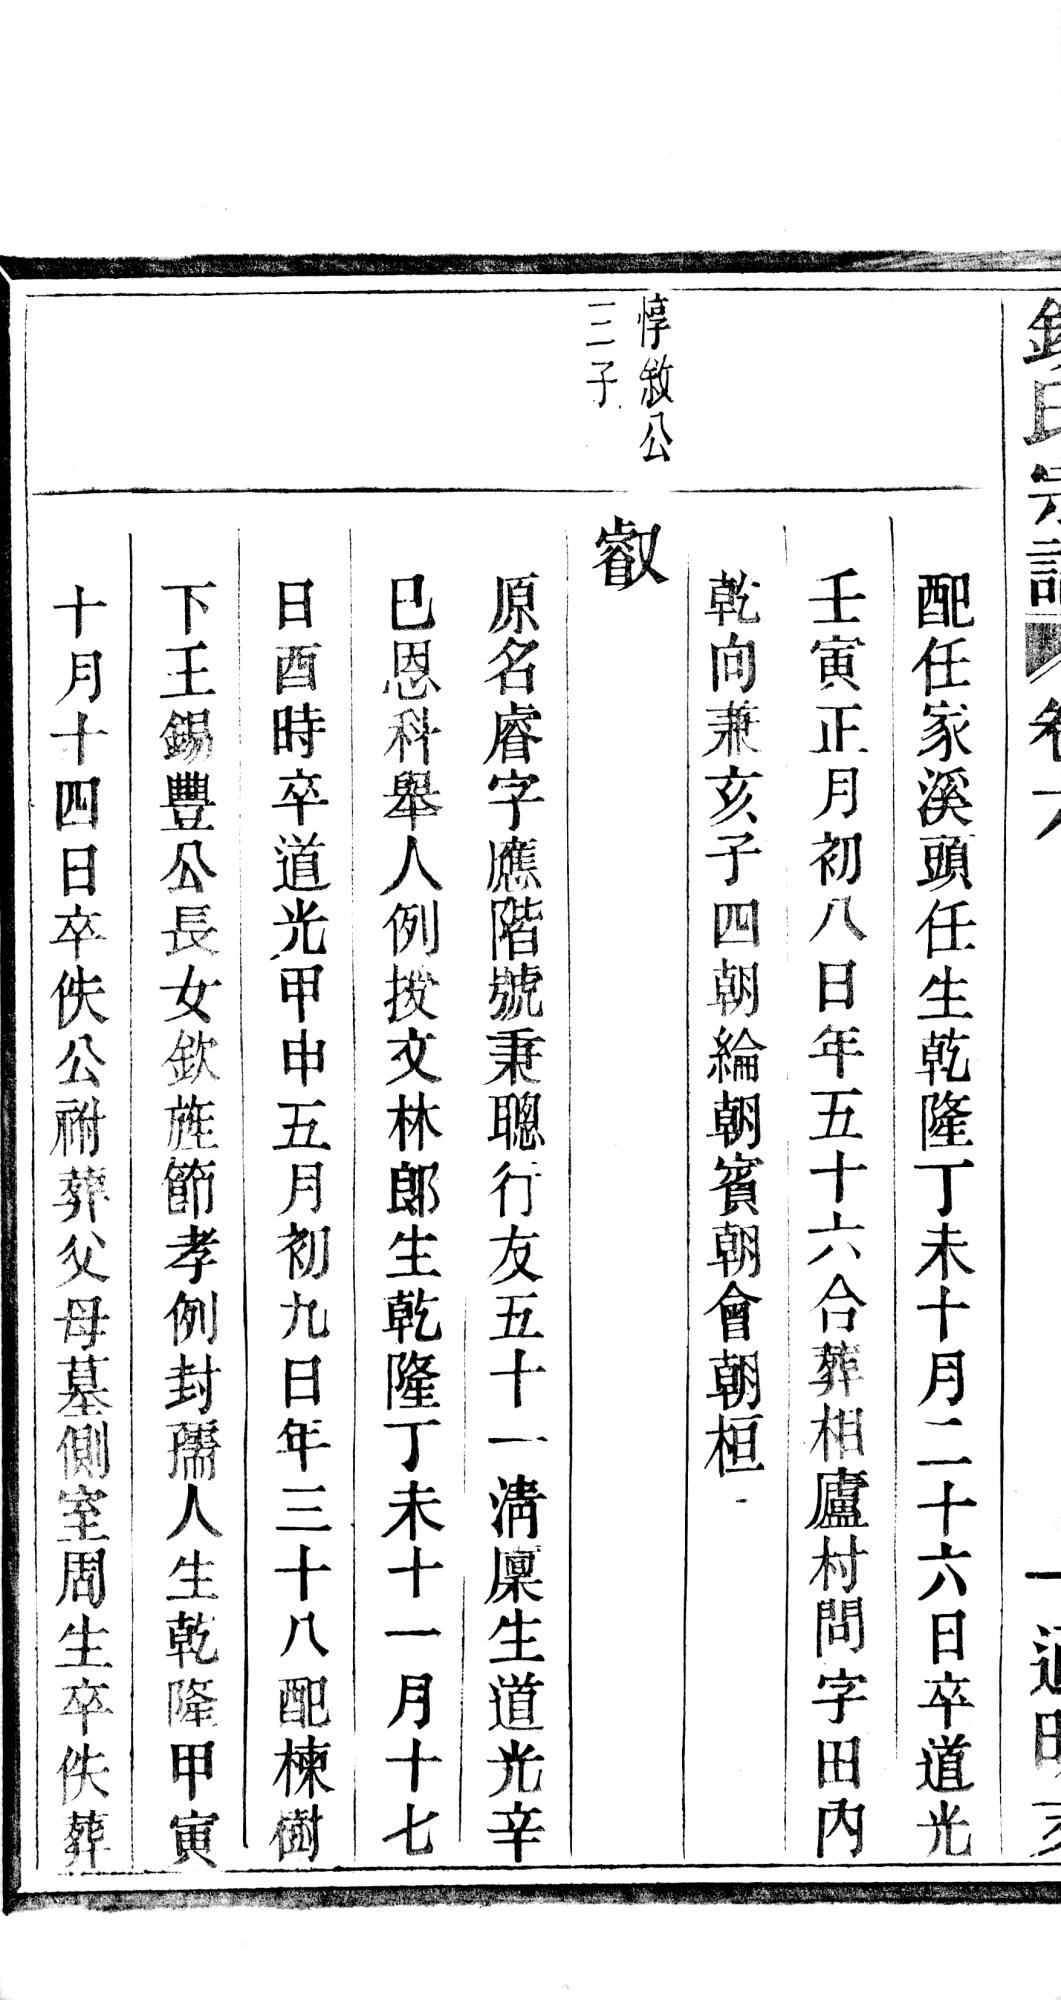 氏宗譜 卷六
配任家溪頭任生乾隆丁未十月二十六日卒道光
壬寅正月初八日年五十六合葬相廬村問字田內
乾向兼亥子四朝綸朝賓朝會朝桓
惇敘公
三子
叡
原名睿字應階號秉聰行友五十一淸廩生道光辛
巳恩科舉人例授文林郎生乾隆丁未十一月十七
日酉時卒道光甲申五月初九日年三十八配楝樹
下王錫豐公長女欽旌節孝例封孺人生乾隆甲寅
十月十四日卒佚公祔葬父母墓側室周生卒佚葬